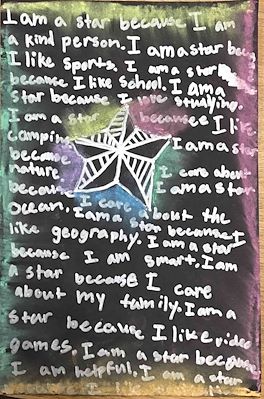 I am a star because I am
a kind person. I am a star bec
I like sports. I am a star
because I like school. I am a
star because I love studying.
I am a star because I like
camping. I am a star
because I care about
nature I am a star
because I care about the
ocean. I am a star because I
like geography. I am a star
because I am smart. I am
a star because I care
about my family. I am a
star because I like video
games. I am a star because
I am helpful. I am a star
because I like